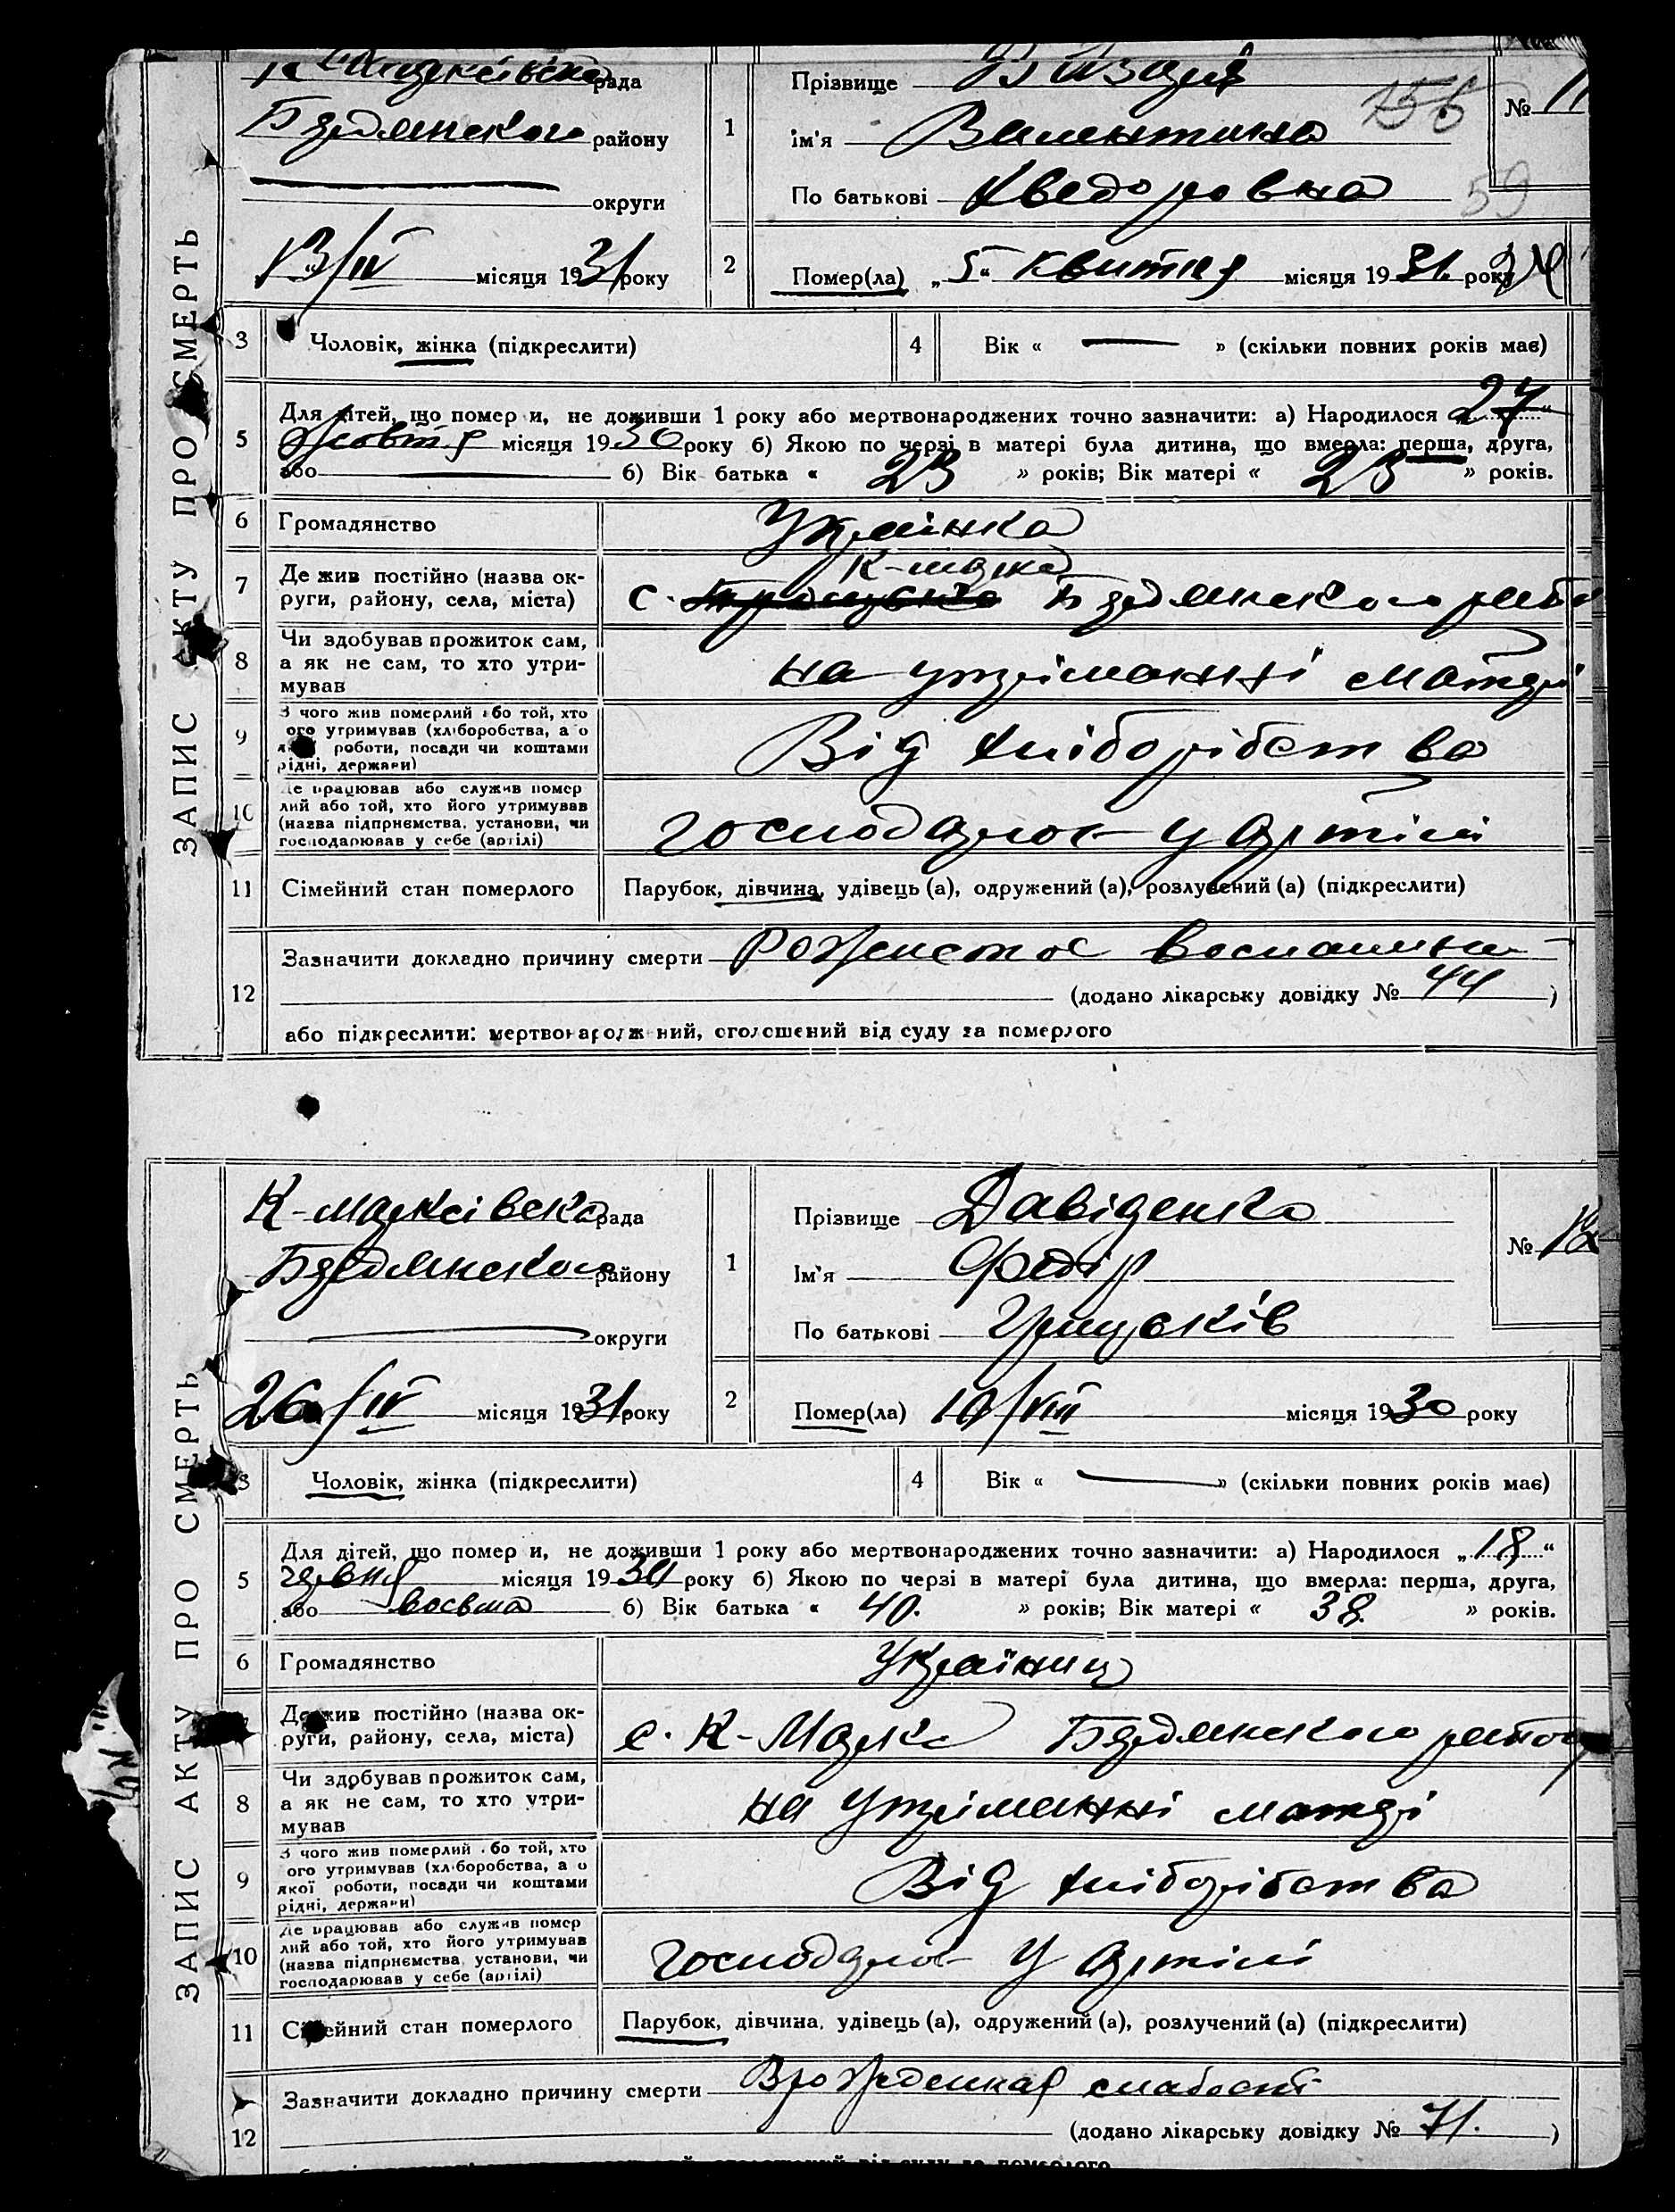 ЗАПИС АКТУ ПРО СМЕРТЬ
рада
Бердянського району
округи
13/IV місяця 1931 року
1
Прізвище
Ім'я Валентина
По батькові Хведоровна
№ 11
156
59
2
Помер(ла) „5“ квитня місяця 1931 року
3 Чоловік, жінка (підкреслити)
4 Вік « — » (скільки повних років має)
5 Для дітей, що померли, не доживши 1 року або мертвонароджених точно зазначити: а) Народилося 27“
Жовтня місяця 1930 року б) Якою по черзі в матері була дитина, що вмерла: перша, друга,
або — б) Вік батька « 23 » років; Вік матері « 23 » років.
6 Громадянство
Украінка
7 Де жив постійно (назва ок-
руги, району, села, міста)
К-маркса
с. Бердянського
8 Чи здобував прожиток сам,
а як не сам, то хто утри-
мував
на утріманні матері
9 З чого жив померлий або той, хто
його утримував (хліборобства, а о
якої роботи, посади чи коштами
рідні, держави)
Від хліборібства
10 Де працював або служив помер
лий або той, хто його утримував
(назва підприємства, установи, чи
господарював у себе (артілі)
господарює у артілі
11 Сімейний стан померлого
Парубок, дівчина, удівець (а), одружений (а), розлучений (а) (підкреслити)
12 Зазначити докладно причину смерти Рожистое воспаление
(додано лікарську довідку № 44 )
або підкреслити: мертвонароджений, оголошений від суду за померлого
ЗАПИС АКТУ ПРО СМЕРТЬ
К-марксівська рада
Бердянського району
округи
26/IV місяця 1931 року
1
Прізвище Давіденко
Ім'я Федір
По батькові
№ 12
2
Помер(ла) 10/VIII місяця 1930 року
3 Чоловік, жінка (підкреслити)
4 Вік « — » (скільки повних років має)
5 Для дітей, що померли, не доживши 1 року або мертвонароджених точно зазначити: а) Народилося „18“
червня місяця 1930 року б) Якою по черзі в матері була дитина, що вмерла: перша, друга,
або восьма б) Вік батька « 40. » років; Вік матері « 38. » років.
6 Громадянство
Украінец
7 Де жив постійно (назва ок-
руги, району, села, міста)
с. К-Маркса Бердянського району
8 Чи здобував прожиток сам,
а як не сам, то хто утри-
мував
на утріманні матері
9 З чого жив померлий або той, хто
його утримував (хліборобства, а о
якої роботи, посади чи коштами
рідні, держави)
Від хліборібства
10 Де працював або служив помер
лий або той, хто його утримував
(назва підприємства, установи, чи
господарював у себе (артілі)
господарює у артілі
11 Сімейний стан померлого
Парубок, дівчина, удівець (а), одружений (а), розлучений (а) (підкреслити)
12 Зазначити докладно причину смерти Врожденная слабость
(додано лікарську довідку № 71. )